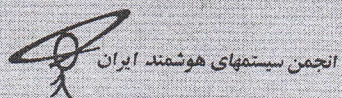 انجمن سیستمهای هوشمند ایران